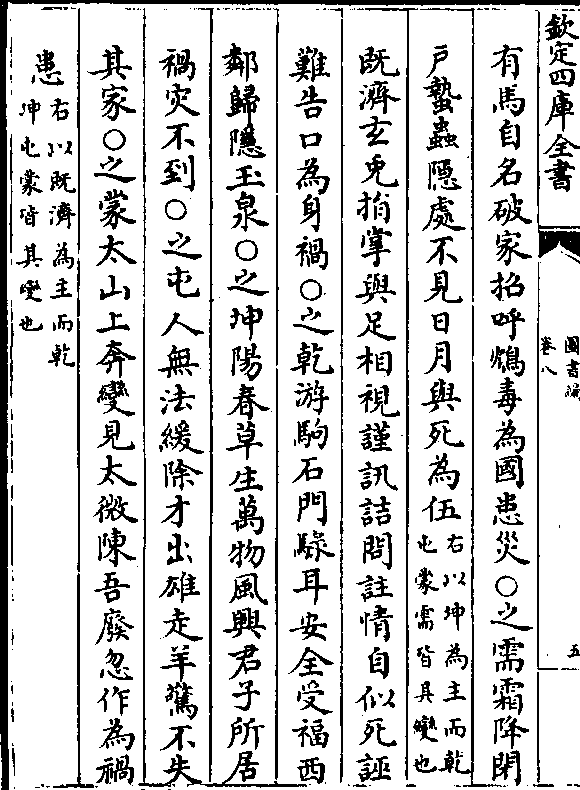 欽定四庫全書
圖書編
卷八
五
有馬自名破家招呼鴆毒為國患災○之需霜降閉
戶蟄蟲隠處不見日月與死為伍右以坤為主而乾
屯蒙需皆具變也
既濟玄兎指掌與足相視謹訊詰問註情自似死誣
難告口為身禍○之乾游駒石門騄耳安全受福西
鄰歸隱玉泉○之坤陽春草生萬物風興君子所居
禍灾不到○之屯人無法緩除才出雄走羊驚不失
其家○之蒙太山上奔變見太微陳吾廢忽作為禍
患右以既濟為主而乾
坤屯蒙皆其變也